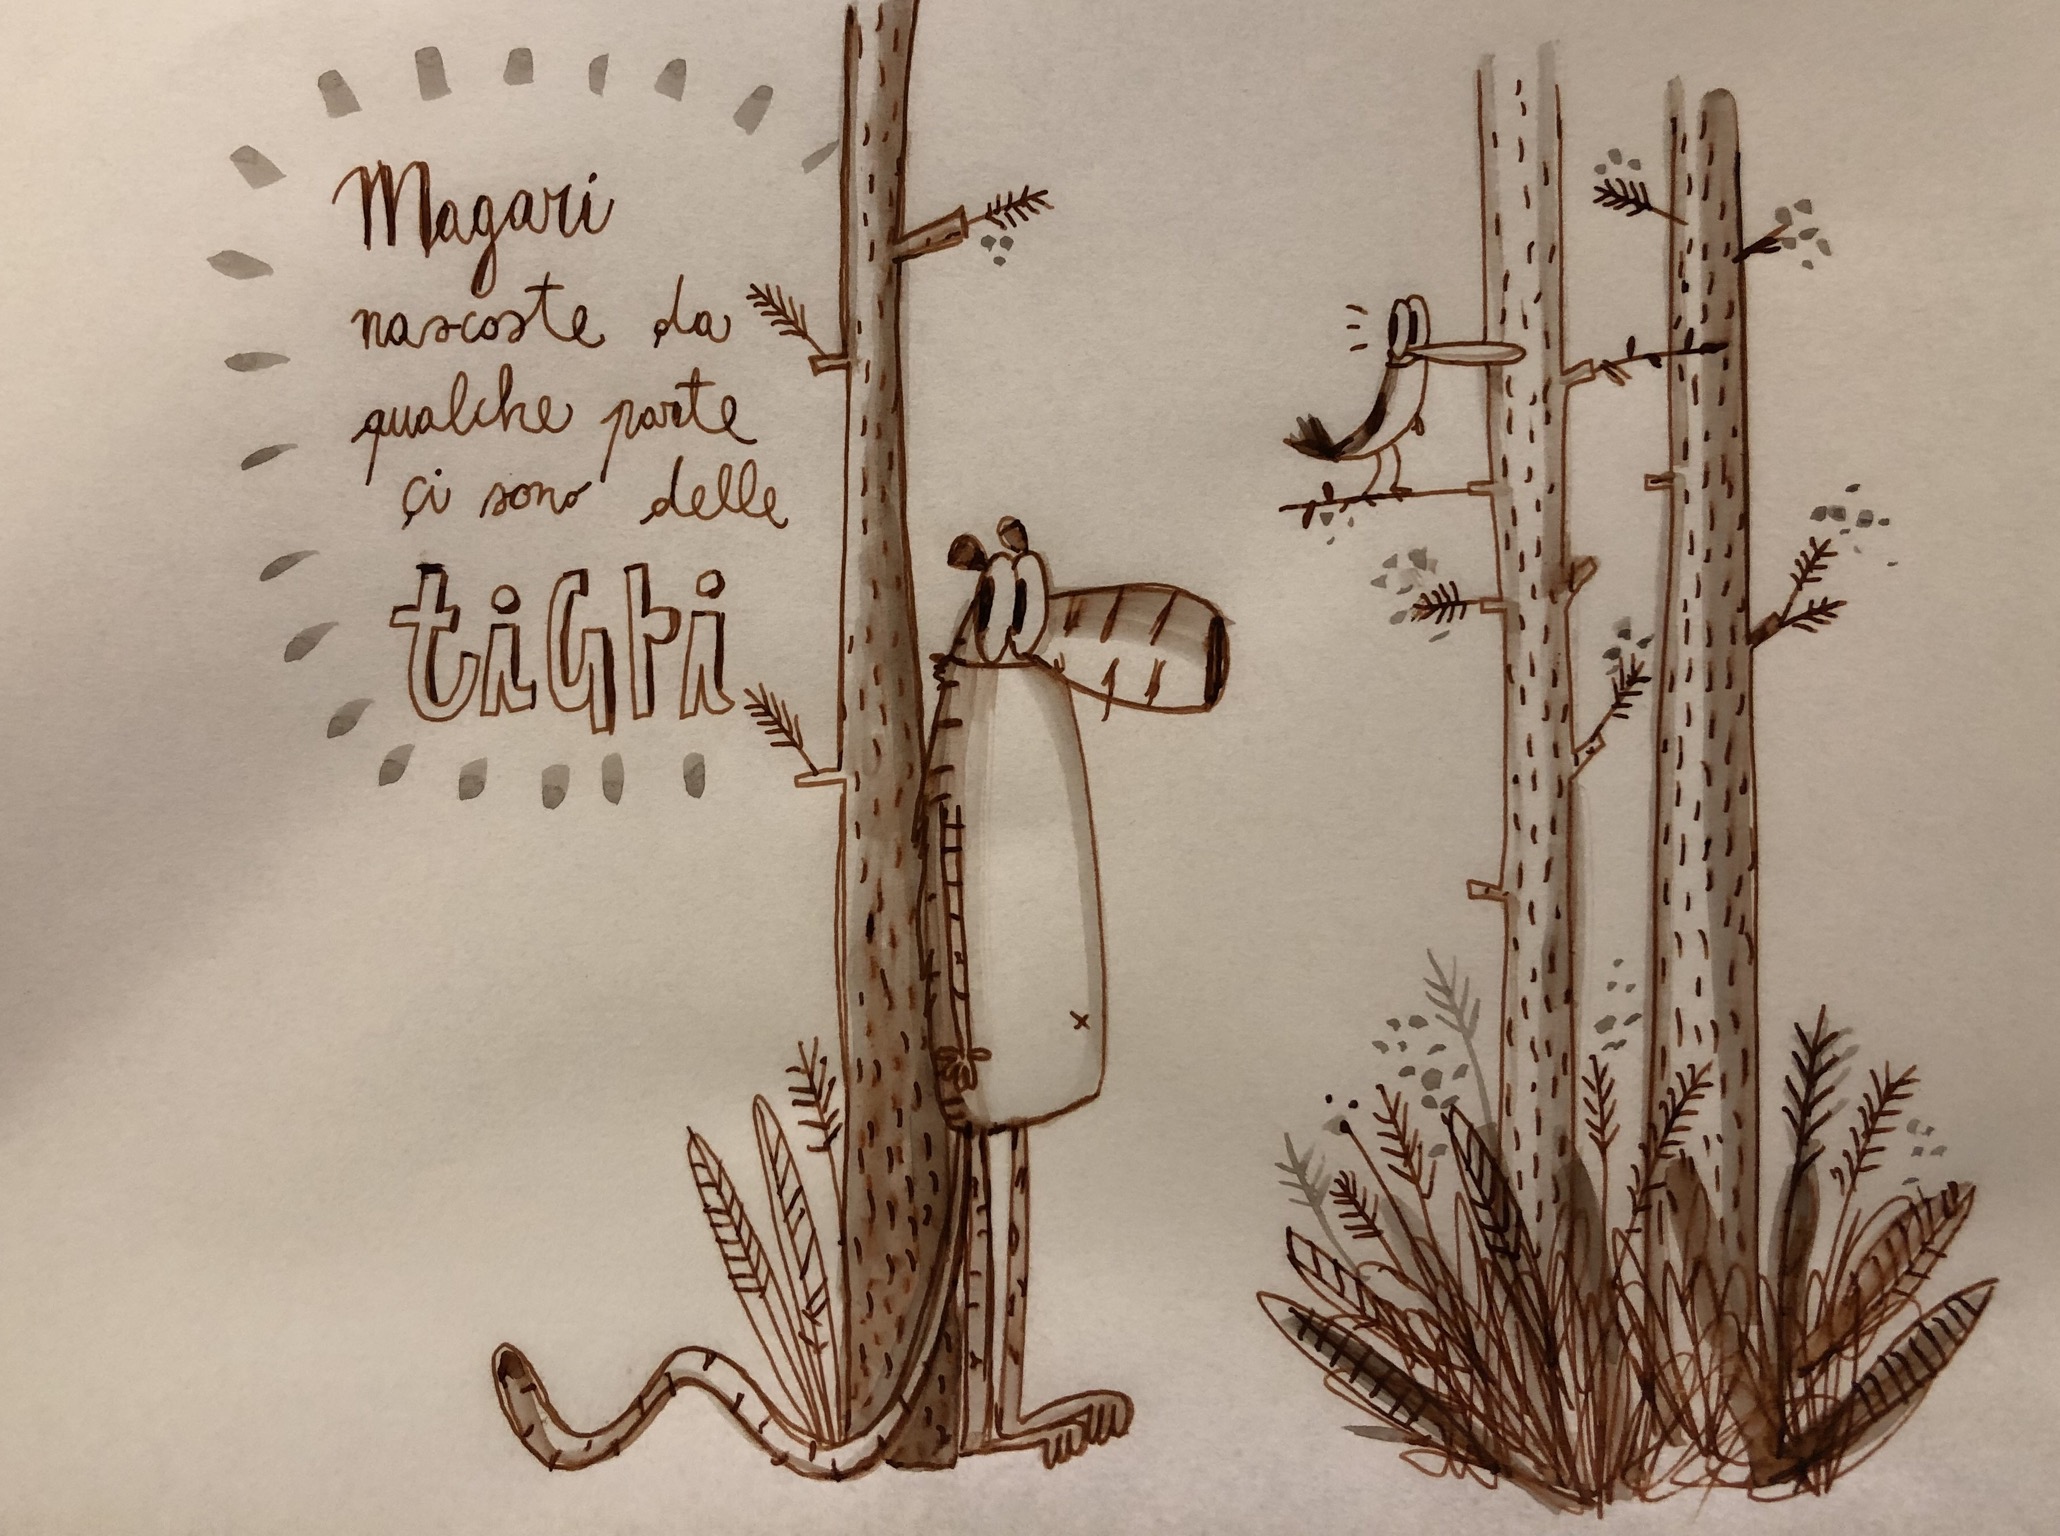 Magari
nascoste da
qualche parte
ci sono delle
tiGri